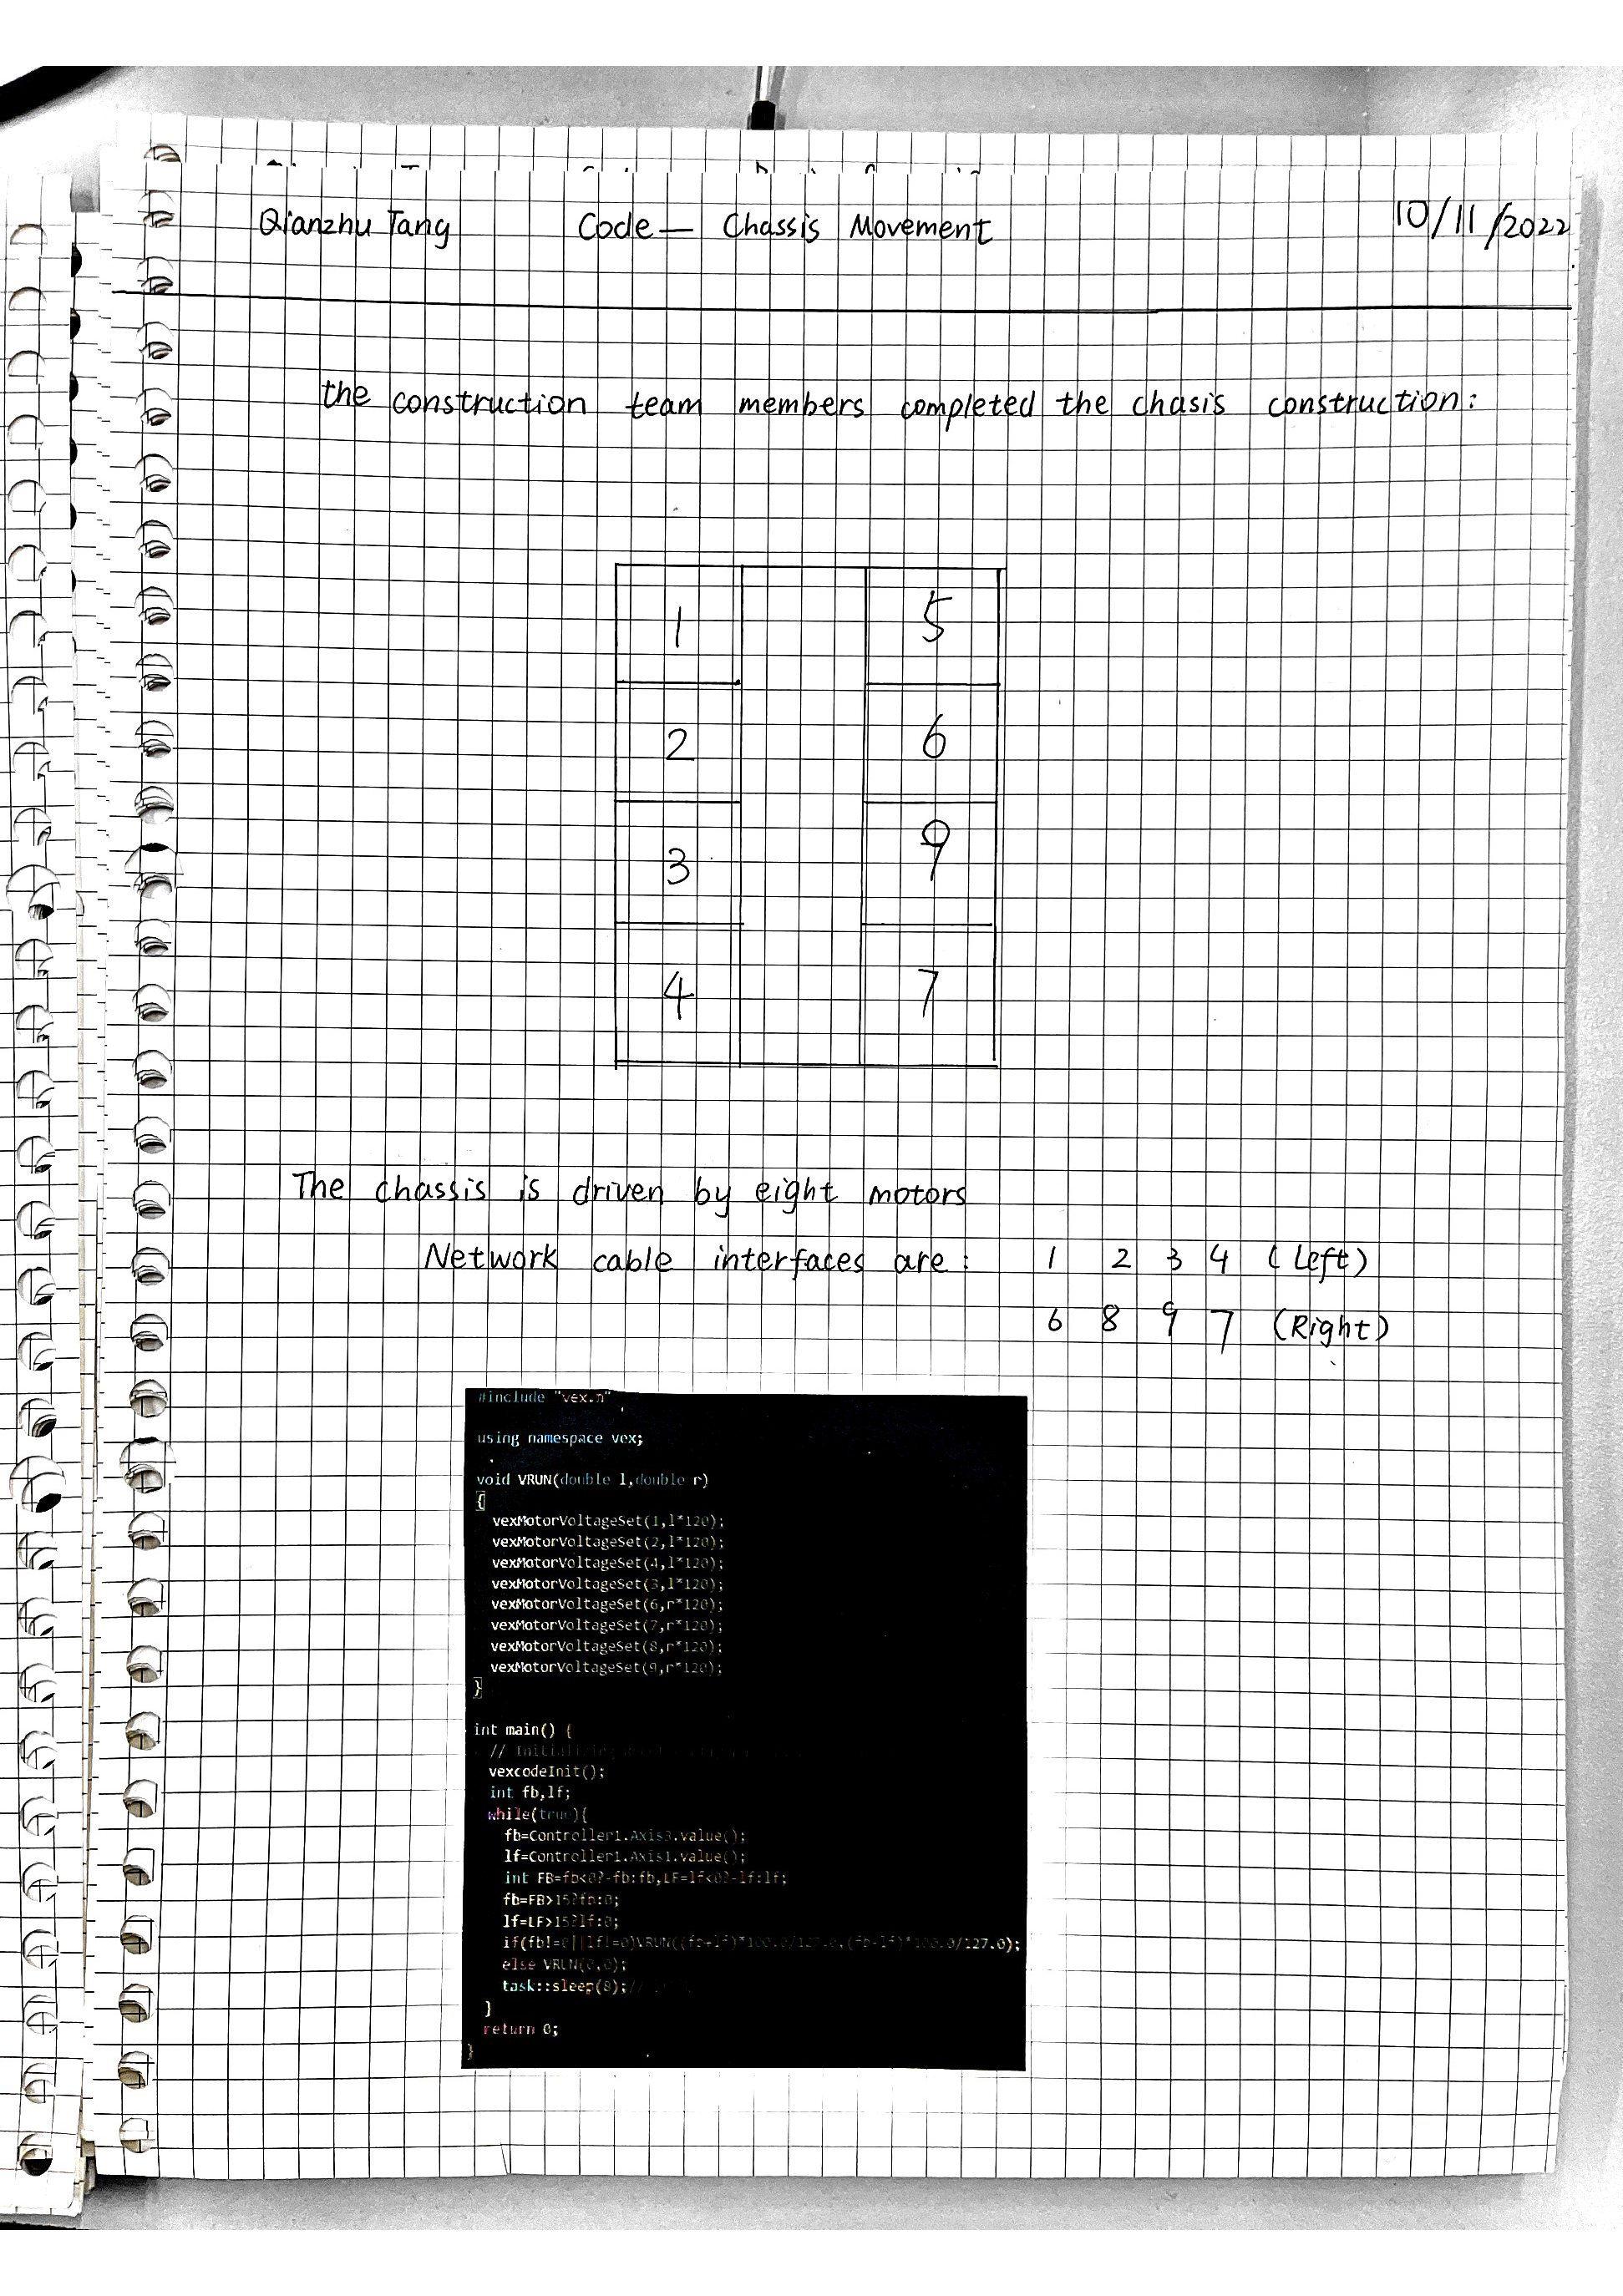 Qianzhu Tang Code — Chassis Movement 10/11/2022
the construction team members completed the chasis construction:
1 5
2 6
3 9
4 7
The chassis is driven by eight motors
Network cable interfaces are: 1 2 3 4 (Left)
6 8 9 7 (Right)
#include "vex.h"
using namespace vex;
void VRUN(double l,double r)
{
vexMotorVoltageSet(1,l*120);
vexMotorVoltageSet(2,l*120);
vexMotorVoltageSet(4,l*120);
vexMotorVoltageSet(3,l*120);
vexMotorVoltageSet(6,r*120);
vexMotorVoltageSet(7,r*120);
vexMotorVoltageSet(8,r*120);
vexMotorVoltageSet(9,r*120);
}
int main() {
// Initializing
vexcodeInit();
int fb,lf;
while(true){
fb=Controller1.Axis3.value();
lf=Controller1.Axis1.value();
int FB=fb<0?-fb:fb,LF=lf<0?-lf:lf;
fb=FB>15?fb:0;
lf=LF>15?lf:0;
if(fb!=0||lf!=0)VRUN((fb+lf)*100.0/127.0,(fb-lf)*100.0/127.0);
else VRUN(0,0);
task::sleep(8);//
}
return 0;
}